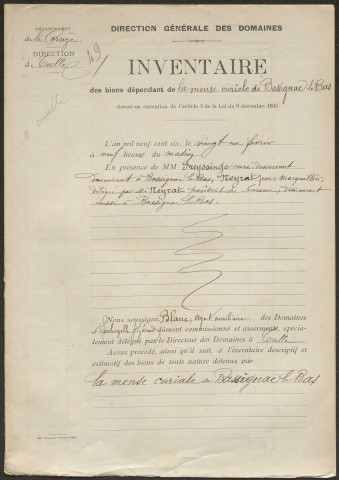 DÉPARTEMENT
de la Corrèze
DIRECTION
de Tulle
49
DIRECTION GÉNÉRALE DES DOMAINES
INVENTAIRE
des biens dépendant de la mense curiale de Bassignac le Bas
dressé en exécution de l'article 3 de la Loi du 9 décembre 1905
L'an mil neuf cent six, le vingt un février
à neuf heures du matin
En présence de MM Freyssinge curé desservant
demeurant à Bassignac le Bas, Neyrat
délégué par M. Neyrat président du bureau, demeurant
aussi à Bassignac le Bas.
Nous soussigné Blanc, des Domaines
dûment commissionné et assermenté, spécia-
lement délégué par le Directeur des Domaines à Tulle
Avons procédé, ainsi qu'il suit, à l'inventaire descriptif et
estimatif des biens de toute nature détenus par
la mense curiale de Bassignac le Bas